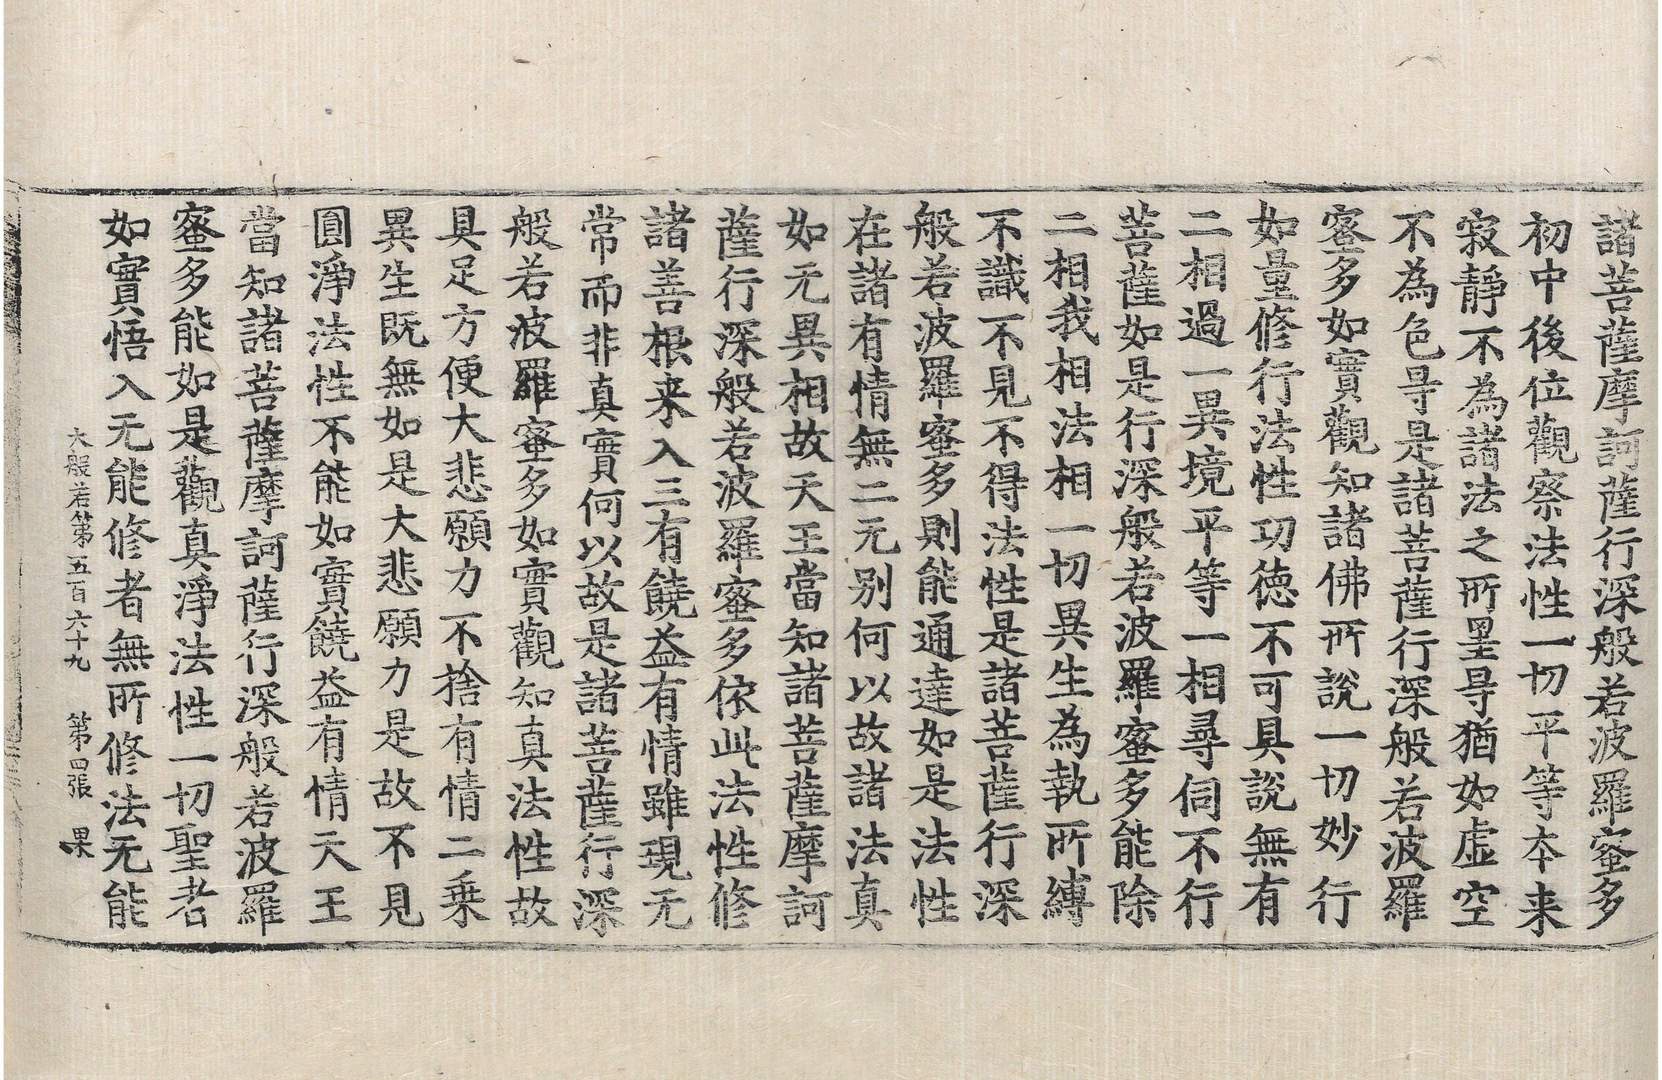 諸菩薩摩訶薩行深般若波羅蜜多
初中後位觀察法性一切平等本来
寂靜不為諸法之所罣㝵猶如虛空
不為色㝵是諸菩薩行深般若波羅
蜜多如實觀知諸佛所說一切妙行
如量修行法性功德不可具說無有
二相過一異境平等一相尋伺不行
菩薩如是行深般若波羅蜜多能除
二相我相法相一切異生為執所縛
不識不見不得法性是諸菩薩行深
般若波羅蜜多則能通達如是法性
在諸有情無二无别何以故諸法真
如无異相故天王當知諸菩薩摩訶
薩行深般若波羅蜜多依此法性修
諸善根来入三有饒益有情雖現无
常而非真實何以故是諸菩薩行深
般若波羅蜜多如實觀知真法性故
具足方便大悲願力不捨有情二乗
異生既無如是大悲願力是故不見
圓淨法性不能如實饒益有情天王
當知諸菩薩摩訶薩行深般若波羅
蜜多能如是觀真淨法性一切聖者
如實悟入无能修者無所修法无能
大般若第五百六十九 第四張 果